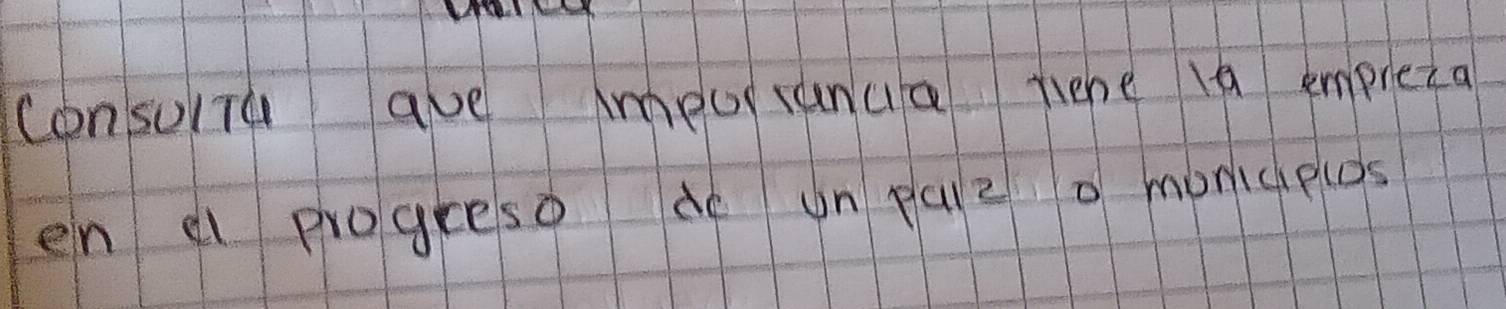 Consulta que importancia tiene la empreza
en el progreeso de un paiz o municipios